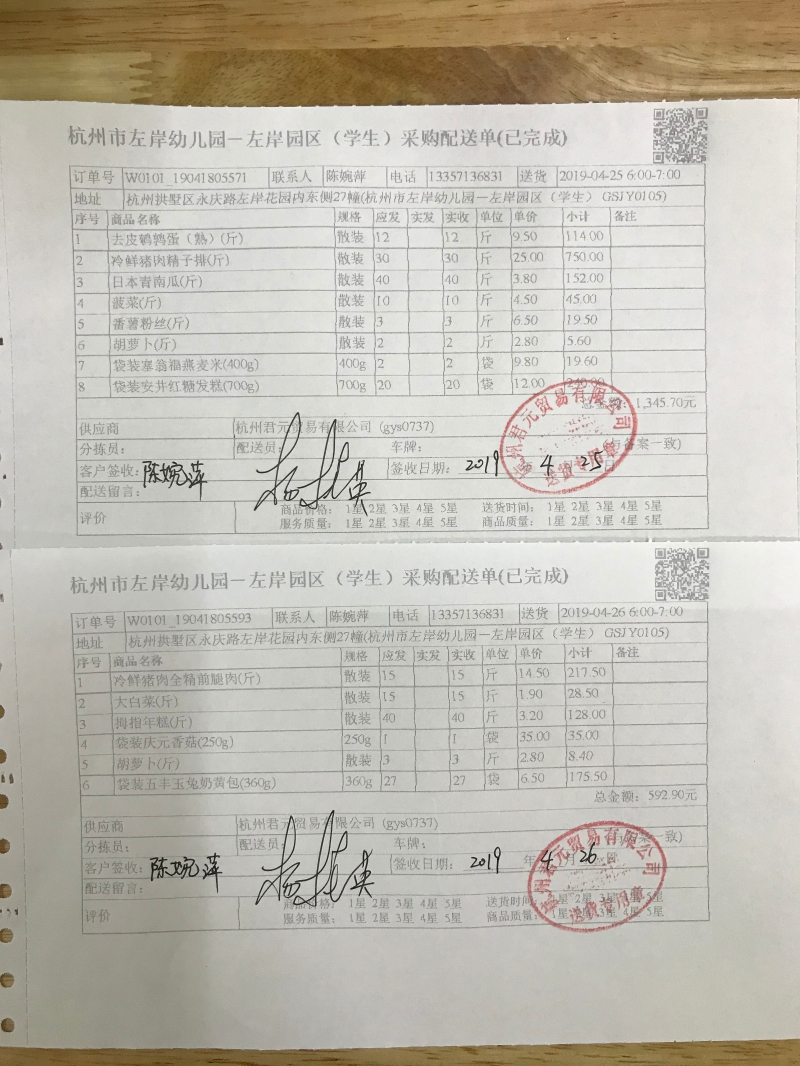 杭州市左岸幼儿园－左岸园区（学生）采购配送单(已完成)
订单号 W0101_19041805571 联系人 陈婉萍 电话 13357136831 送货 2019-04-25 6:00-7:00
地址 杭州拱墅区永庆路左岸花园内东侧27幢(杭州市左岸幼儿园－左岸园区（学生） GSJY0105)
序号 商品名称 规格 应发 实发 实收 单位 单价 小计 备注
1 去皮鹌鹑蛋（熟）(斤) 散装 12 12 斤 9.50 114.00
2 冷鲜猪肉精子排(斤) 散装 30 30 斤 25.00 750.00
3 日本青南瓜(斤) 散装 40 40 斤 3.80 152.00
4 菠菜(斤) 散装 10 10 斤 4.50 45.00
5 番薯粉丝(斤) 散装 3 3 斤 6.50 19.50
6 胡萝卜(斤) 散装 2 2 斤 2.80 5.60
7 袋装塞翁福燕麦米(400g) 400g 2 2 袋 9.80 19.60
8 袋装安井红糖发糕(700g) 700g 20 20 袋 12.00 240.00
总金额：1,345.70元
供应商 杭州君元贸易有限公司 (gys0737)
分拣员： 配送员： 车牌： 与备案一致)
客户签收：陈婉萍 签收日期： 2019 4 25日
配送留言：
评价 商品价格： 1星 2星 3星 4星 5星 送货时间： 1星 2星 3星 4星 5星
服务质量： 1星 2星 3星 4星 5星 商品质量： 1星 2星 3星 4星 5星
杭州君元贸易有限公司
送货专用章
杭州市左岸幼儿园－左岸园区（学生）采购配送单(已完成)
订单号 W0101_19041805593 联系人 陈婉萍 电话 13357136831 送货 2019-04-26 6:00-7:00
地址 杭州拱墅区永庆路左岸花园内东侧27幢(杭州市左岸幼儿园－左岸园区（学生） GSJY0105)
序号 商品名称 规格 应发 实发 实收 单位 单价 小计 备注
1 冷鲜猪肉全精前腿肉(斤) 散装 15 15 斤 14.50 217.50
2 大白菜(斤) 散装 15 15 斤 1.90 28.50
3 拇指年糕(斤) 散装 40 40 斤 3.20 128.00
4 袋装庆元香菇(250g) 250g 1 1 袋 35.00 35.00
5 胡萝卜(斤) 散装 3 3 斤 2.80 8.40
6 袋装五丰玉兔奶黄包(360g) 360g 27 27 袋 6.50 175.50
总金额：592.90元
供应商 杭州君元贸易有限公司 (gys0737)
分拣员： 配送员： 车牌： 案一致)
客户签收：陈婉萍 签收日期： 2019 年 4 月 26 日
配送留言：
评价 商品价格： 1星 2星 3星 4星 5星 送货时间 1星 2星 3星 4星 5星
服务质量： 1星 2星 3星 4星 5星 商品质量： 1星 2星 3星 4星 5星
杭州君元贸易有限公司
送货专用章